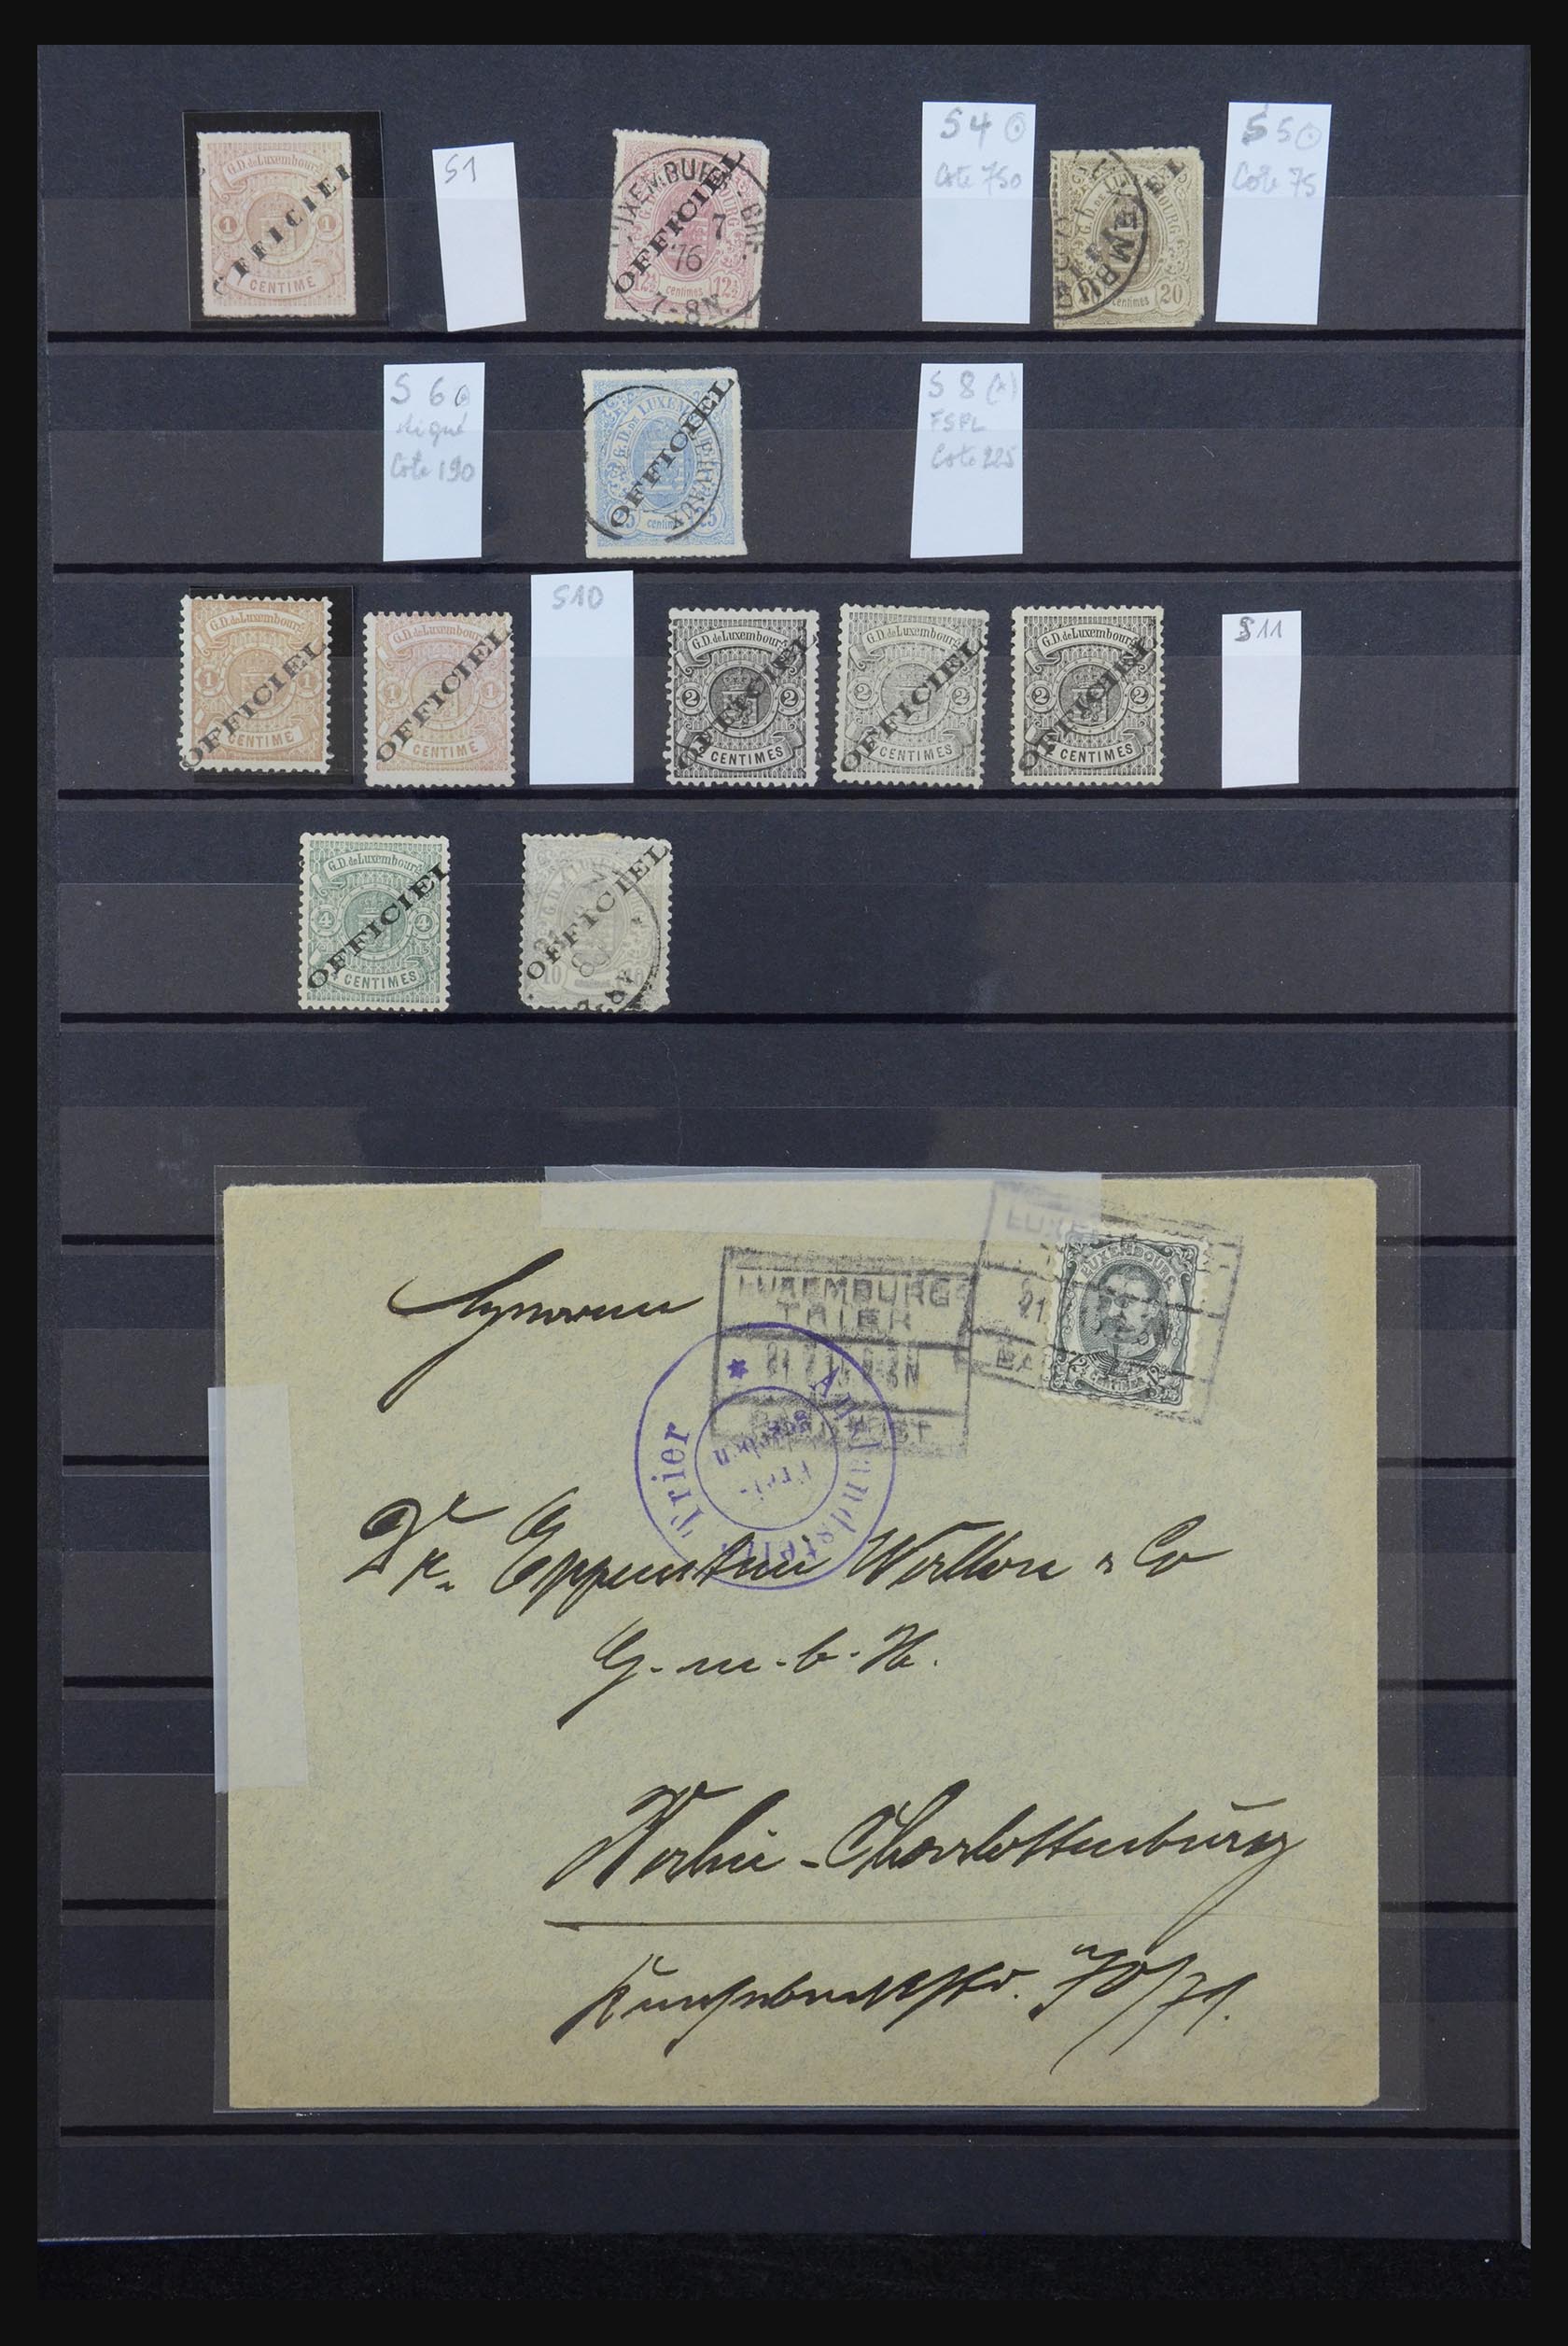 G.D. de Luxembourg
OFFICIEL
1 1
CENTIME
S1
LUXEMBURG-GRE
OFFICIEL
7
76
7-8N
12½ centimes 12½
S4
Cote 750
OFFICIEL
centimes 20
S5
Cote 75
S6
signé
Cote 190
G.D. DE LUXEMBOURG
OFFICIEL
25 centimes 25
S8 (*)
FSPL
Cote 225
G.D. de Luxembourg
OFFICIEL
1 1
CENTIME
G.D. de Luxembourg
OFFICIEL
1 1
CENTIME
S10
G.D. de Luxembourg
OFFICIEL
2 2
CENTIMES
G.D. de Luxembourg
OFFICIEL
2 2
CENTIMES
G.D. de Luxembourg
OFFICIEL
2 2
CENTIMES
S11
G.D. de Luxembourg
OFFICIEL
4 4
CENTIMES
OFFICIEL
10
LUXEMBOURG
CENTIMES
LUXEMBURG
TRIER
Auslandstelle Trier
Frei-
gegeben
& Co
G.m.b.H.
Berlin-Charlottenburg
70/71.